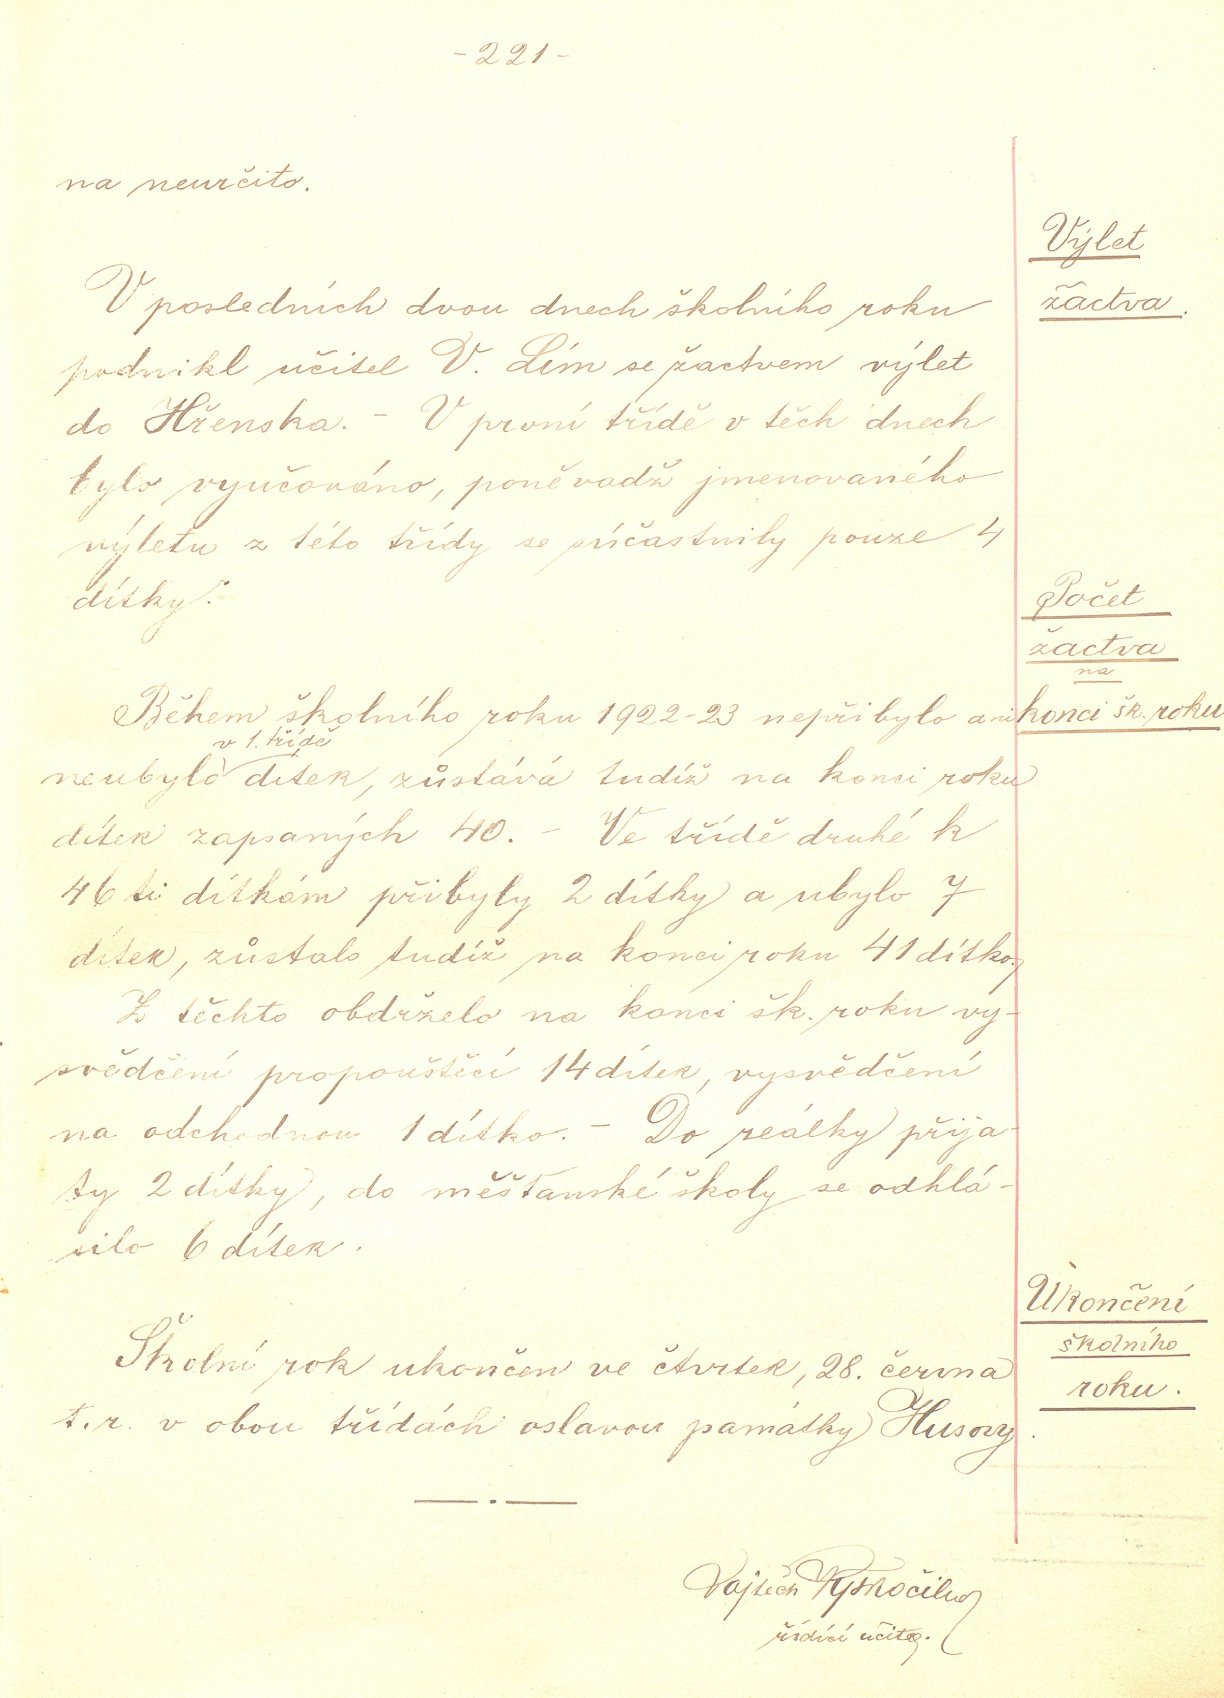 - 221 -
na neurčito.
Výlet
žactva.
V posledních dvou dnech školního roku
podnikl učitel V. Lím se žactvem výlet
do Hřenska. - V první třídě v těch dnech
bylo vyučováno, poněvadž jmenovaného
výletu z této třídy se súčastnily pouze 4
dítky.
Počet
žactva
na
konci šk. roku
Během školního roku 1922-23 nepřibylo ani
v 1. třídě
neubylo dítek, zůstává tudíž na konci roku
dítek zapsaných 40. - Ve třídě druhé k
46 ti dítkám přibyly 2 dítky a ubylo 7
dítek, zůstalo tudíž na konci roku 41 dítko.
Z těchto obdrželo na konci šk. roku vy-
svědčení propouštěcí 14 dítek, vysvědčení
na odchodnou 1 dítko. - Do reálky přija-
ty 2 dítky, do měšťanské školy se odhlá-
silo 6 dítek.
Ukončení
školního
roku.
Školní rok ukončen ve čtvrtek, 28. června
t. r. v obou třídách oslavou památky Husovy.
Vojtěch Vyskočil
řídící učitel.